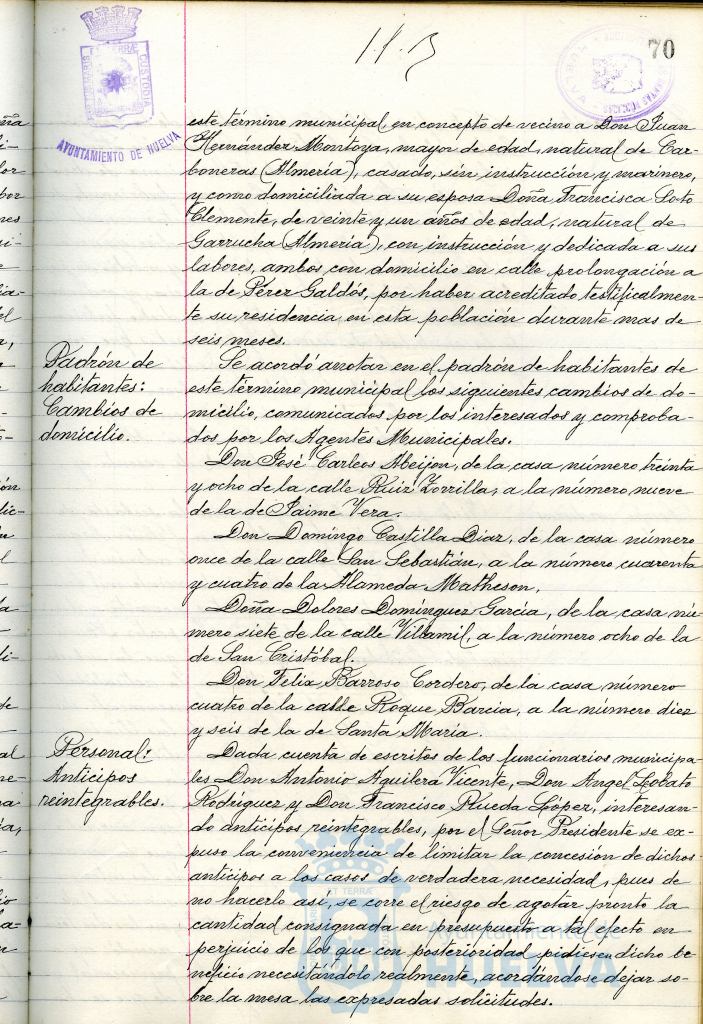 70
PORTUS MARIS ET TERRÆ CUSTODIA
AYUNTAMIENTO DE HUELVA
este término municipal, en concepto de vecino a Don Juan
Hernández Montoya, mayor de edad, natural de Car-
boneras (Almería), casado, sin instrucción y marinero,
y como domiciliada a su esposa Doña Francisca Soto
Clemente, de veinte y un años de edad, natural de
Garrucha (Almería), con instrucción y dedicada a sus
labores, ambos con domicilio en calle prolongación a
la de Pérez Galdós, por haber acreditado testificalmen-
te su residencia en esta población durante mas de
seis meses.
Padrón de
habitantes:
Cambios de
domicilio.
Se acordó anotar en el padrón de habitantes de
este término municipal los siguientes cambios de do-
micilio, comunicados por los interesados y comproba-
dos por los Agentes Municipales.
Don José Carlos Meijon, de la casa número treinta
y ocho de la calle Ruiz Zorrilla, a la número nueve
de la de Jaime Vera.
Don Domingo Castilla Diaz, de la casa número
once de la calle San Sebastián, a la número cuarenta
y cuatro de la Alameda Matheson.
Doña Dolores Domínguez García, de la casa nú-
mero siete de la calle Villamil, a la número ocho de la
de San Cristóbal.
Don Felix Barroso Cordero, de la casa número
cuatro de la calle Roque Barcia, a la número diez
y seis de la de Santa María.
Personal:
Anticipos
reintegrables.
Dada cuenta de escritos de los funcionarios municipa-
les Don Antonio Aguilera Vicente, Don Angel Lobato
Rodríguez y Don Francisco Rueda López, interesan-
do anticipos reintegrables, por el Señor Presidente se ex-
puso la conveniencia de limitar la concesión de dichos
anticipos a los casos de verdadera necesidad, pues de
no hacerlo así, se corre el riesgo de agotar pronto la
cantidad consignada en presupuesto a tal efecto en
perjuicio de los que con posterioridad pidiesen dicho be-
neficio necesitándolo realmente, acordándose dejar so-
bre la mesa las expresadas solicitudes.
Ayuntamiento de
HUELVA